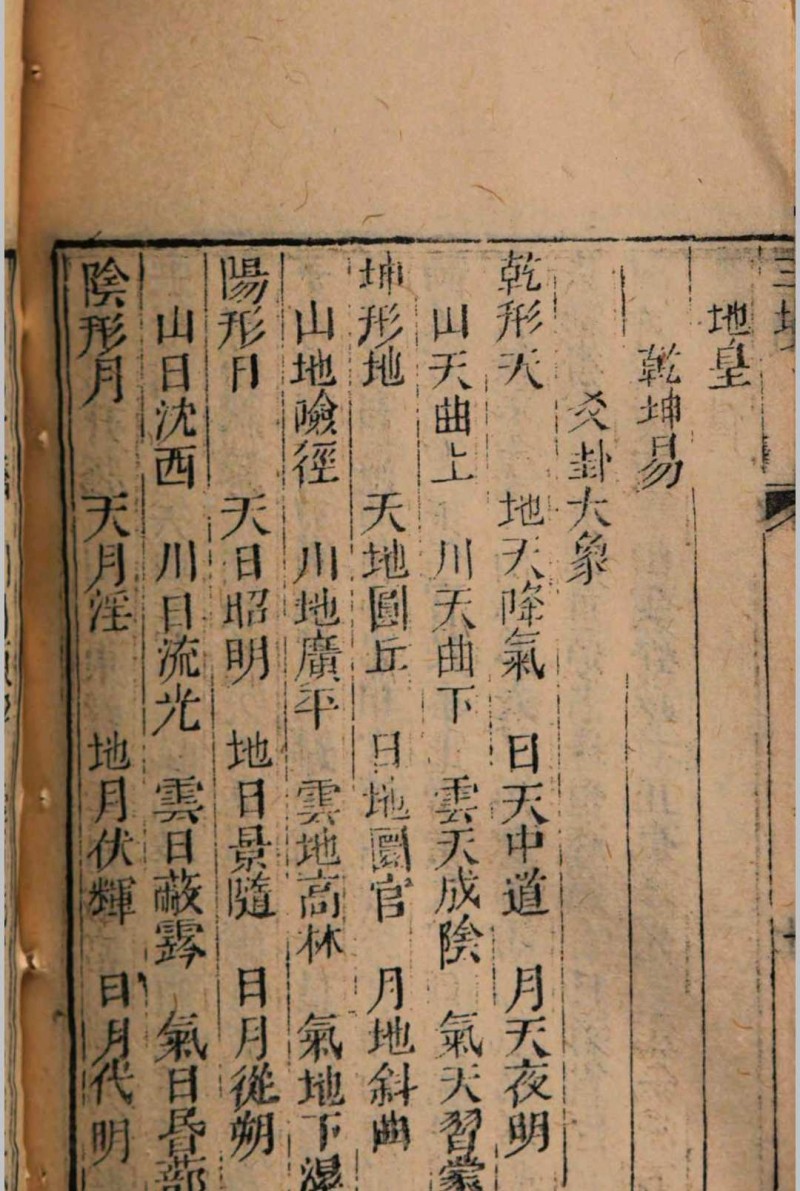 三墳
地皇
乾坤易
爻卦大象
乾形天 地天降氣 日天中道 月天夜明
山天曲上 川天曲下 雲天成陰 氣天習蒙
坤形地 天地圓丘 日地圜宫 月地斜曲
山地險徑 川地廣平 雲地高林 氣地下濕
陽形日 天日昭明 地日景隨 日月從朔
山日沈西 川日流光 雲日蔽霧 氣日昏蔀
陰形月 天月淫 地月伏輝 日月代明